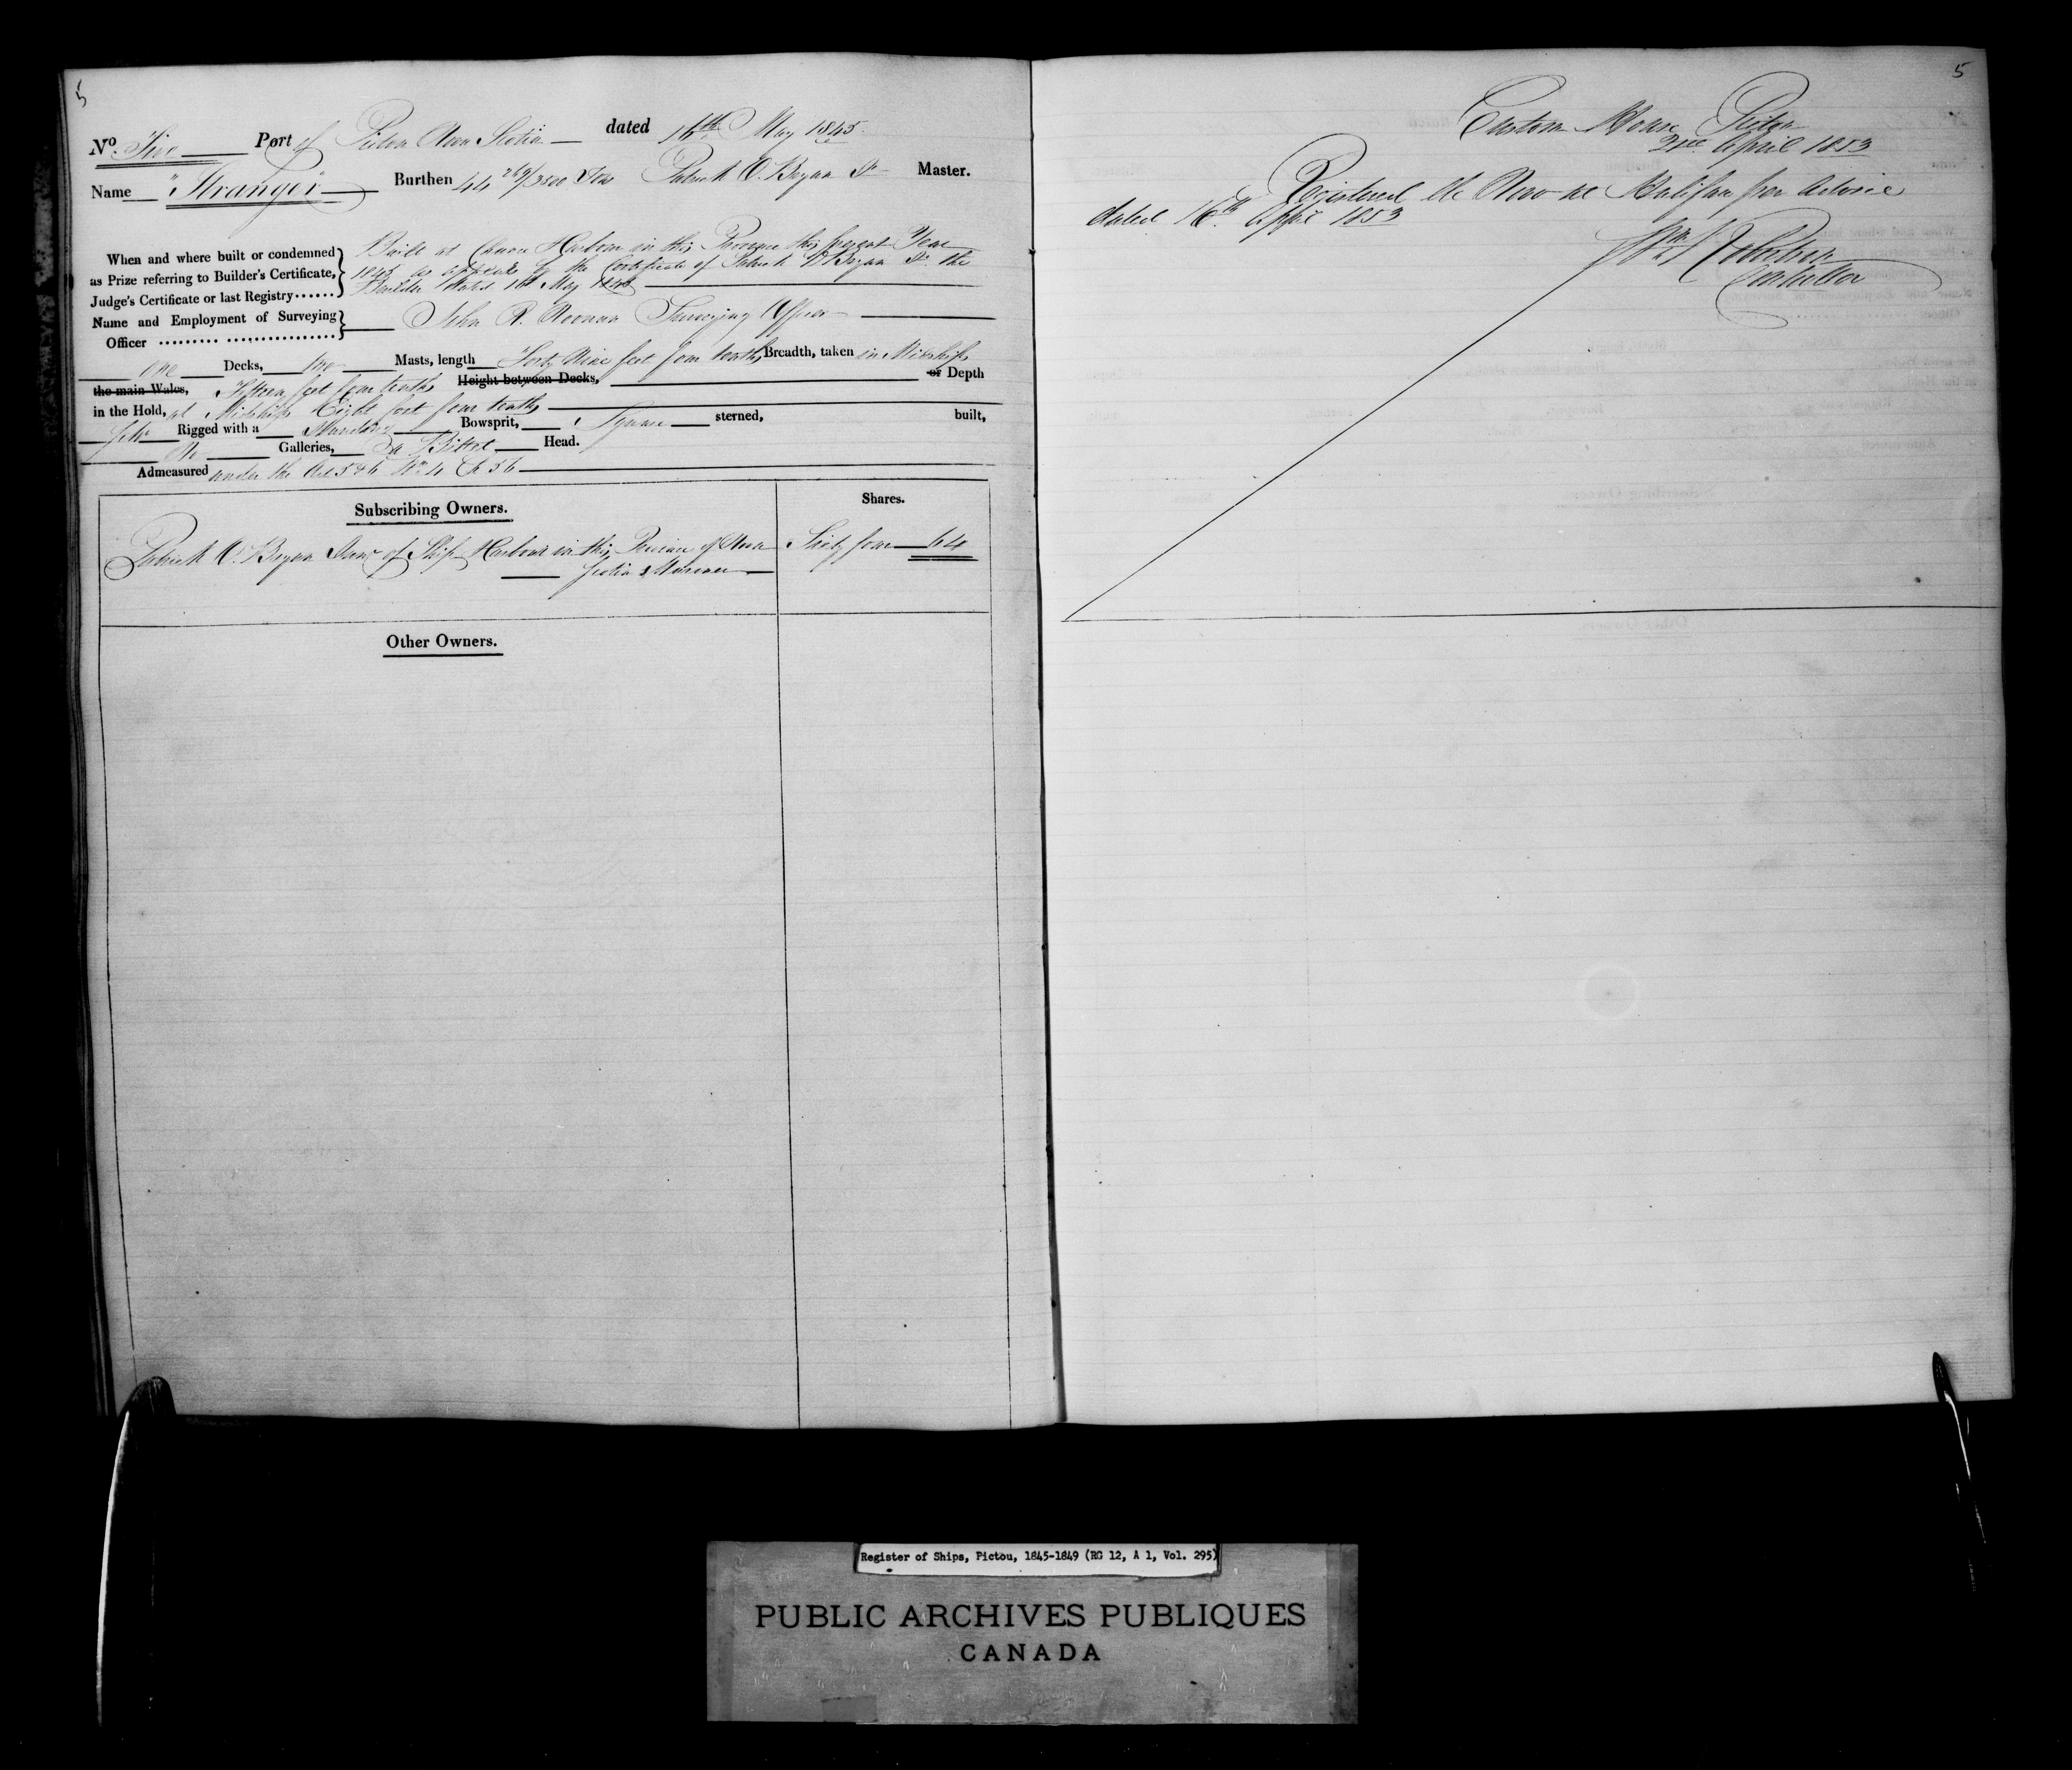 5
No. Five Port of Pictou Nova Scotia dated 16th May 1845
Name "Stranger" Burthen 44 269/3500 Tons Patrick O. Bryan Sr Master.
When and where built or condemned
as Prize referring to Builder's Certificate,
Judge's Certificate or last Registry
Built at Harbour in this Province this present Year
1845 as appears by the Certificate of Patrick O'Bryan Sr. the
Builder dated May 1845
Name and Employment of Surveying
Officer
John R. Noonan Surveying Officer
One Decks, two Masts, length Forty Nine feet four tenths Breadth, taken in Midships
the main Wales, Fifteen feet four tenths Height between Decks, or Depth
in the Hold, at Midships Eight feet four tenths
Rigged with a Standing Bowsprit, Square sterned, built,
No Galleries, Head.
Admeasured under the Act 5 & 6 Wm. 4 Ch 56
Subscribing Owners.
Shares.
Patrick O. Bryan Senr of Ship Harbour in this Province of Nova
Scotia Mariner
Sixty four 64
Other Owners.
5
Custom House Pictou
21st April 1853
Registered de Novo at Halifax per Advice
dated 16th April 1853
Wm
Controller
Register of Ships, Pictou, 1845-1849 (RG 12, A 1, Vol. 295)
PUBLIC ARCHIVES PUBLIQUES
CANADA